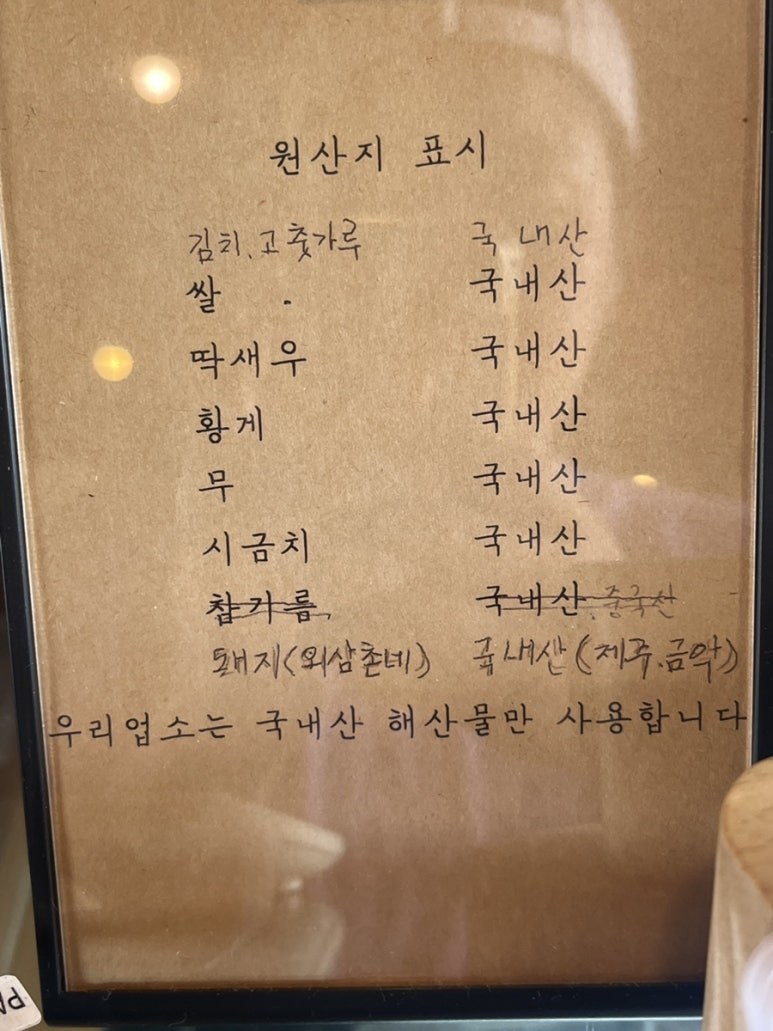 원산지 표시
김치, 고춧가루 국내산
쌀 . 국내산
딱새우 국내산
황게 국내산
무 국내산
시금치 국내산
참기름, 국내산, 중국산
돼지(외삼촌네) 국내산(제주.금악)
우리업소는 국내산 해산물만 사용합니다